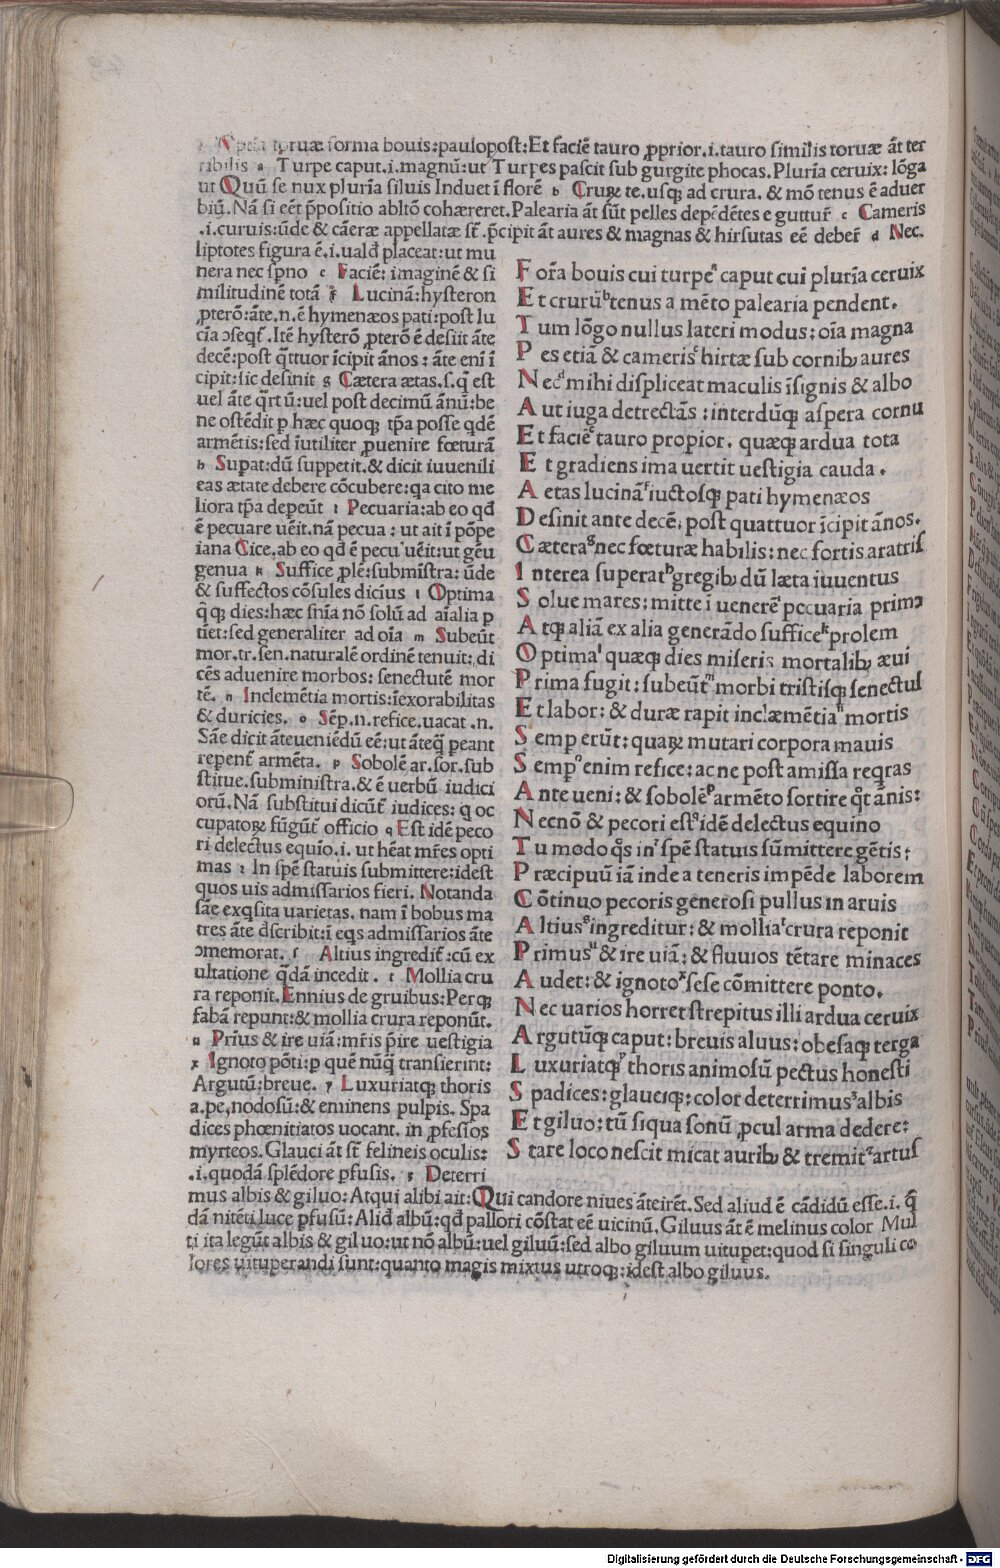 toruæ forma bouis:paulopost:Et faciē tauro ꝓprior.i.tauro similis toruæ āt ter
ribilis a Turpe caput.i.magnū:ut Turpes pascit sub gurgite phocas. Pluria ceruix: lōga
ut Quū se nux plurīa siluis Induet ī florē b Cruꝝ te.usqꝫ ad crura. & mō tenus ē aduer
biū.Nā si cēt p̄positio abltō cohæreret.Palearia āt sūt pelles depēdētes e guttur̄ c Cameris
.i.curuis:ūde & cāeræ appellatæ st̄.p̄cipit āt aures & magnas & hirsutas eē deber̄ d Nec.
liptotes figura ē.i.uald̄ placeat:ut mu
nera nec sp̄no e Faciē: imaginē & si
militudinē totā f Lucinā:hysteron
ꝓterō:āte.n.ē hymenæos pati:post lu
cīa ↄseqt̄.Itē hysterō ꝓterō ē desiit āte
decē:post q̄ttuor īcipit ānos: āte enī ī
cipit:sic desinit g Cætera ætas.s.q̄ est
uel āte q̄rtū:uel post decimū ānū:be
ne ostēdit p hæc quoqꝫ tp̄a posse qdē
armētis:sed īutiliter ꝓuenire fœturā
h Supat:dū suppetit.& dicit iuuenili
eas ætate debere cōcubere:qa cito me
liora tp̄a depeūt i Pecuaria:ab eo qd̄
ē pecuare uēit.nā pecua: ut ait ī pōpe
iana Cice.ab eo qd̄ ē pecu uēit:ut gēu
genua k Suffice ꝓlē:submīstra: ūde
& suffectos cōsules dicīus l Optima
q̄qꝫ dies:hæc snīa nō solū ad aīalia p
tiet:sed generaliter ad oīa m Subeūt
mor.tr.sen.naturalē ordinē tenuit: di
cēs aduenire morbos: senectutē mor
tē. n Inclemētia mortis:īexorabilitas
& duricies. o Sēp.n.refice.uacat .n.
Sāe dicit āteueniēdū eē:ut āteq̄ peant
repent̄ armēta. p Sobolē ar.sor.sub
stitue.subministra.& ē uerbū iudici
orū.Nā substitui dicūt̄ iudices: q oc
cupatoꝝ fūgūt̄ officio q Est idē peco
ri delectus equīo.i. ut hēat mr̄es opti
mas r In spē statuis submittere:idest
quos uis admissarios fieri. Notanda
sāe exqsita uarietas. nam ī bobus ma
tres āte dscribit:ī eqs admissarios āte
ↄmemorat. s Altius ingredit̄:cū ex
ultatione q̄dā incedit. t Mollia cru
ra reponit.Ennius de gruibus:Perqꝫ
fabā repunt:& mollia crura reponūt.
u Prīus & ire uiā:mr̄is p̄ire uestigia
x Ignoto pōti:p quē nūq̄ transierint:
Argutū:breue. y Luxuriatqꝫ thoris
a.pe,nodosū:& eminens pulpis. Spa
dices phœnitiatos uocant. in ꝓfessos
myrteos.Glauci āt st̄ felineis oculis:
.i.quodā splēdore pfusis. z Deterri
mus albis & giluo:Atqui alibi ait:Qui candore niues āteirēt.Sed aliud ē cādidū esse.i. q̄
dā nitēti luce pfusū:Alid̄ albū:qd̄ pallori cōstat eē uicinū.Giluus āt ē melinus color Mul
ti ita legūt albis & giluo:ut nō albū:uel giluū:sed albo giluum uitupet:quod si singuli co
lores uituperandi sunt:quanto magis mixtus utroqꝫ:idest albo giluus.
For̄a bouis cui turpeᵃ caput cui plurīa ceruix
Et crurūᵇ tenus a mēto palearia pendent.
Tum lōgo nullus lateri modus: oīa magna
Pes etiā & camerisᶜ hirtæ sub cornibꝫ aures
Necᵈ mihi displiceat maculis īsignis & albo
Aut iuga detrectās: interdūqꝫ aspera cornu
Et faciēᵉ tauro propior. quæqꝫ ardua tota
Et gradiens ima uertit uestigia cauda.
Aetas lucināᶠ iuctosqꝫ pati hymenæos
Desinit ante decē. post quattuor īcipit ānos.
Cæteraᵍ nec fœturæ habilis: nec fortis aratris
Interea superatʰ gregibꝫ dū læta iuuentus
Solue mares: mitte ī uenerēⁱ pecuaria primꝰ
Atqꝫ aliā ex alia generādo sufficeᵏ prolem
Optimaˡ quæqꝫ dies miseris mortalibꝫ æui
Prima fugit: subeūtᵐ morbi tristisqꝫ senectus
Et labor: & duræ rapit inclæmētiaⁿ mortis
Semp erūt: quaꝝ mutari corpora mauis
Sempᵒ enim refice: ac ne post amissa reqras
Ante ueni: & sobolēᵖ armēto sortire q̄t ānis:
Necnō & pecori estq idē delectus equino
Tu modo q̄s inʳ spē statuis sūmittere gētis:
Præcipuū iā inde a teneris impēde laborem
Cōtinuo pecoris generosi pullus in aruis
Altiusˢ ingreditur: & molliaᵗ crura reponit
Primusᵘ & ire uiā: & fluuios tētare minaces
Audet: & ignotoˣ sese cōmittere ponto.
Nec uarios horret strepitus illi ardua ceruix
Argutūqꝫ caput: breuis aluus: obesaqꝫ terga
Luxuriatqꝫʸ thoris animosū pectus honesti
Spadices: glauciqꝫ: color deterrimusᶻ albis
Et giluo: tū siqua sonū ꝓcul arma dedere:
Stare loco nescit micat auribꝫ & tremit artus
Digitalisierung gefördert durch die Deutsche Forschungsgemeinschaft - DFG